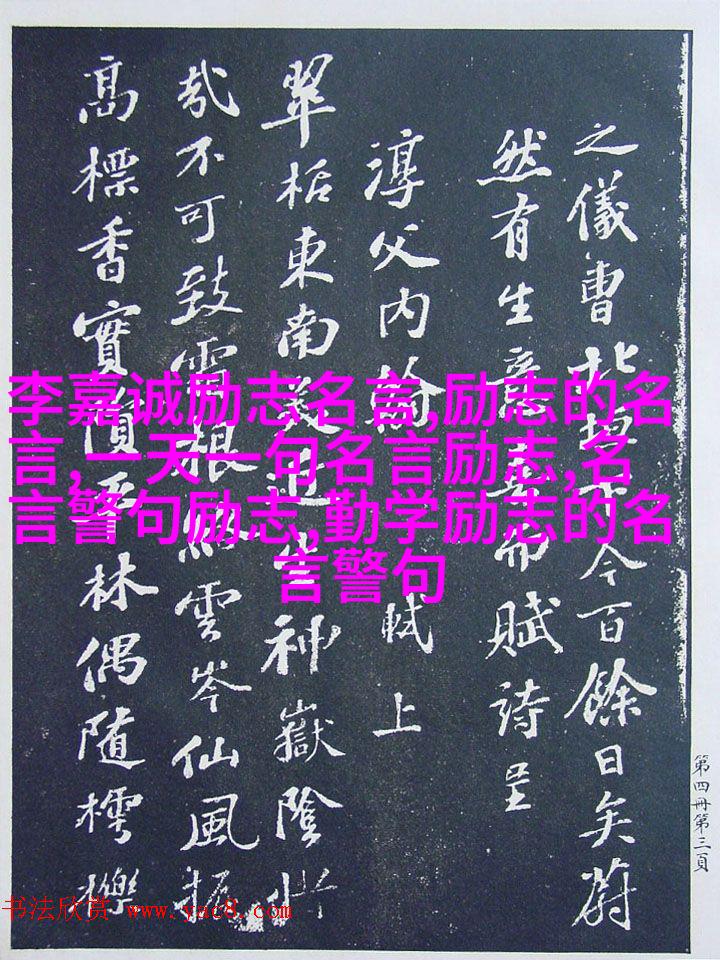 之儀曹北垣下今百餘日矣蔚
然有生意喜而賦詩呈
淳父內翰 軾上
翠栝東南美近生神嶽陰惜
哉不可致霜根絡雲岑仙風振
高標香實隕平林偶隨樗櫟
李嘉诚励志名言,励志的名
言,一天一句名言励志,名
言警句励志,勤学励志的名
言警句
第四冊第三頁
书法欣赏 www.yac8.com